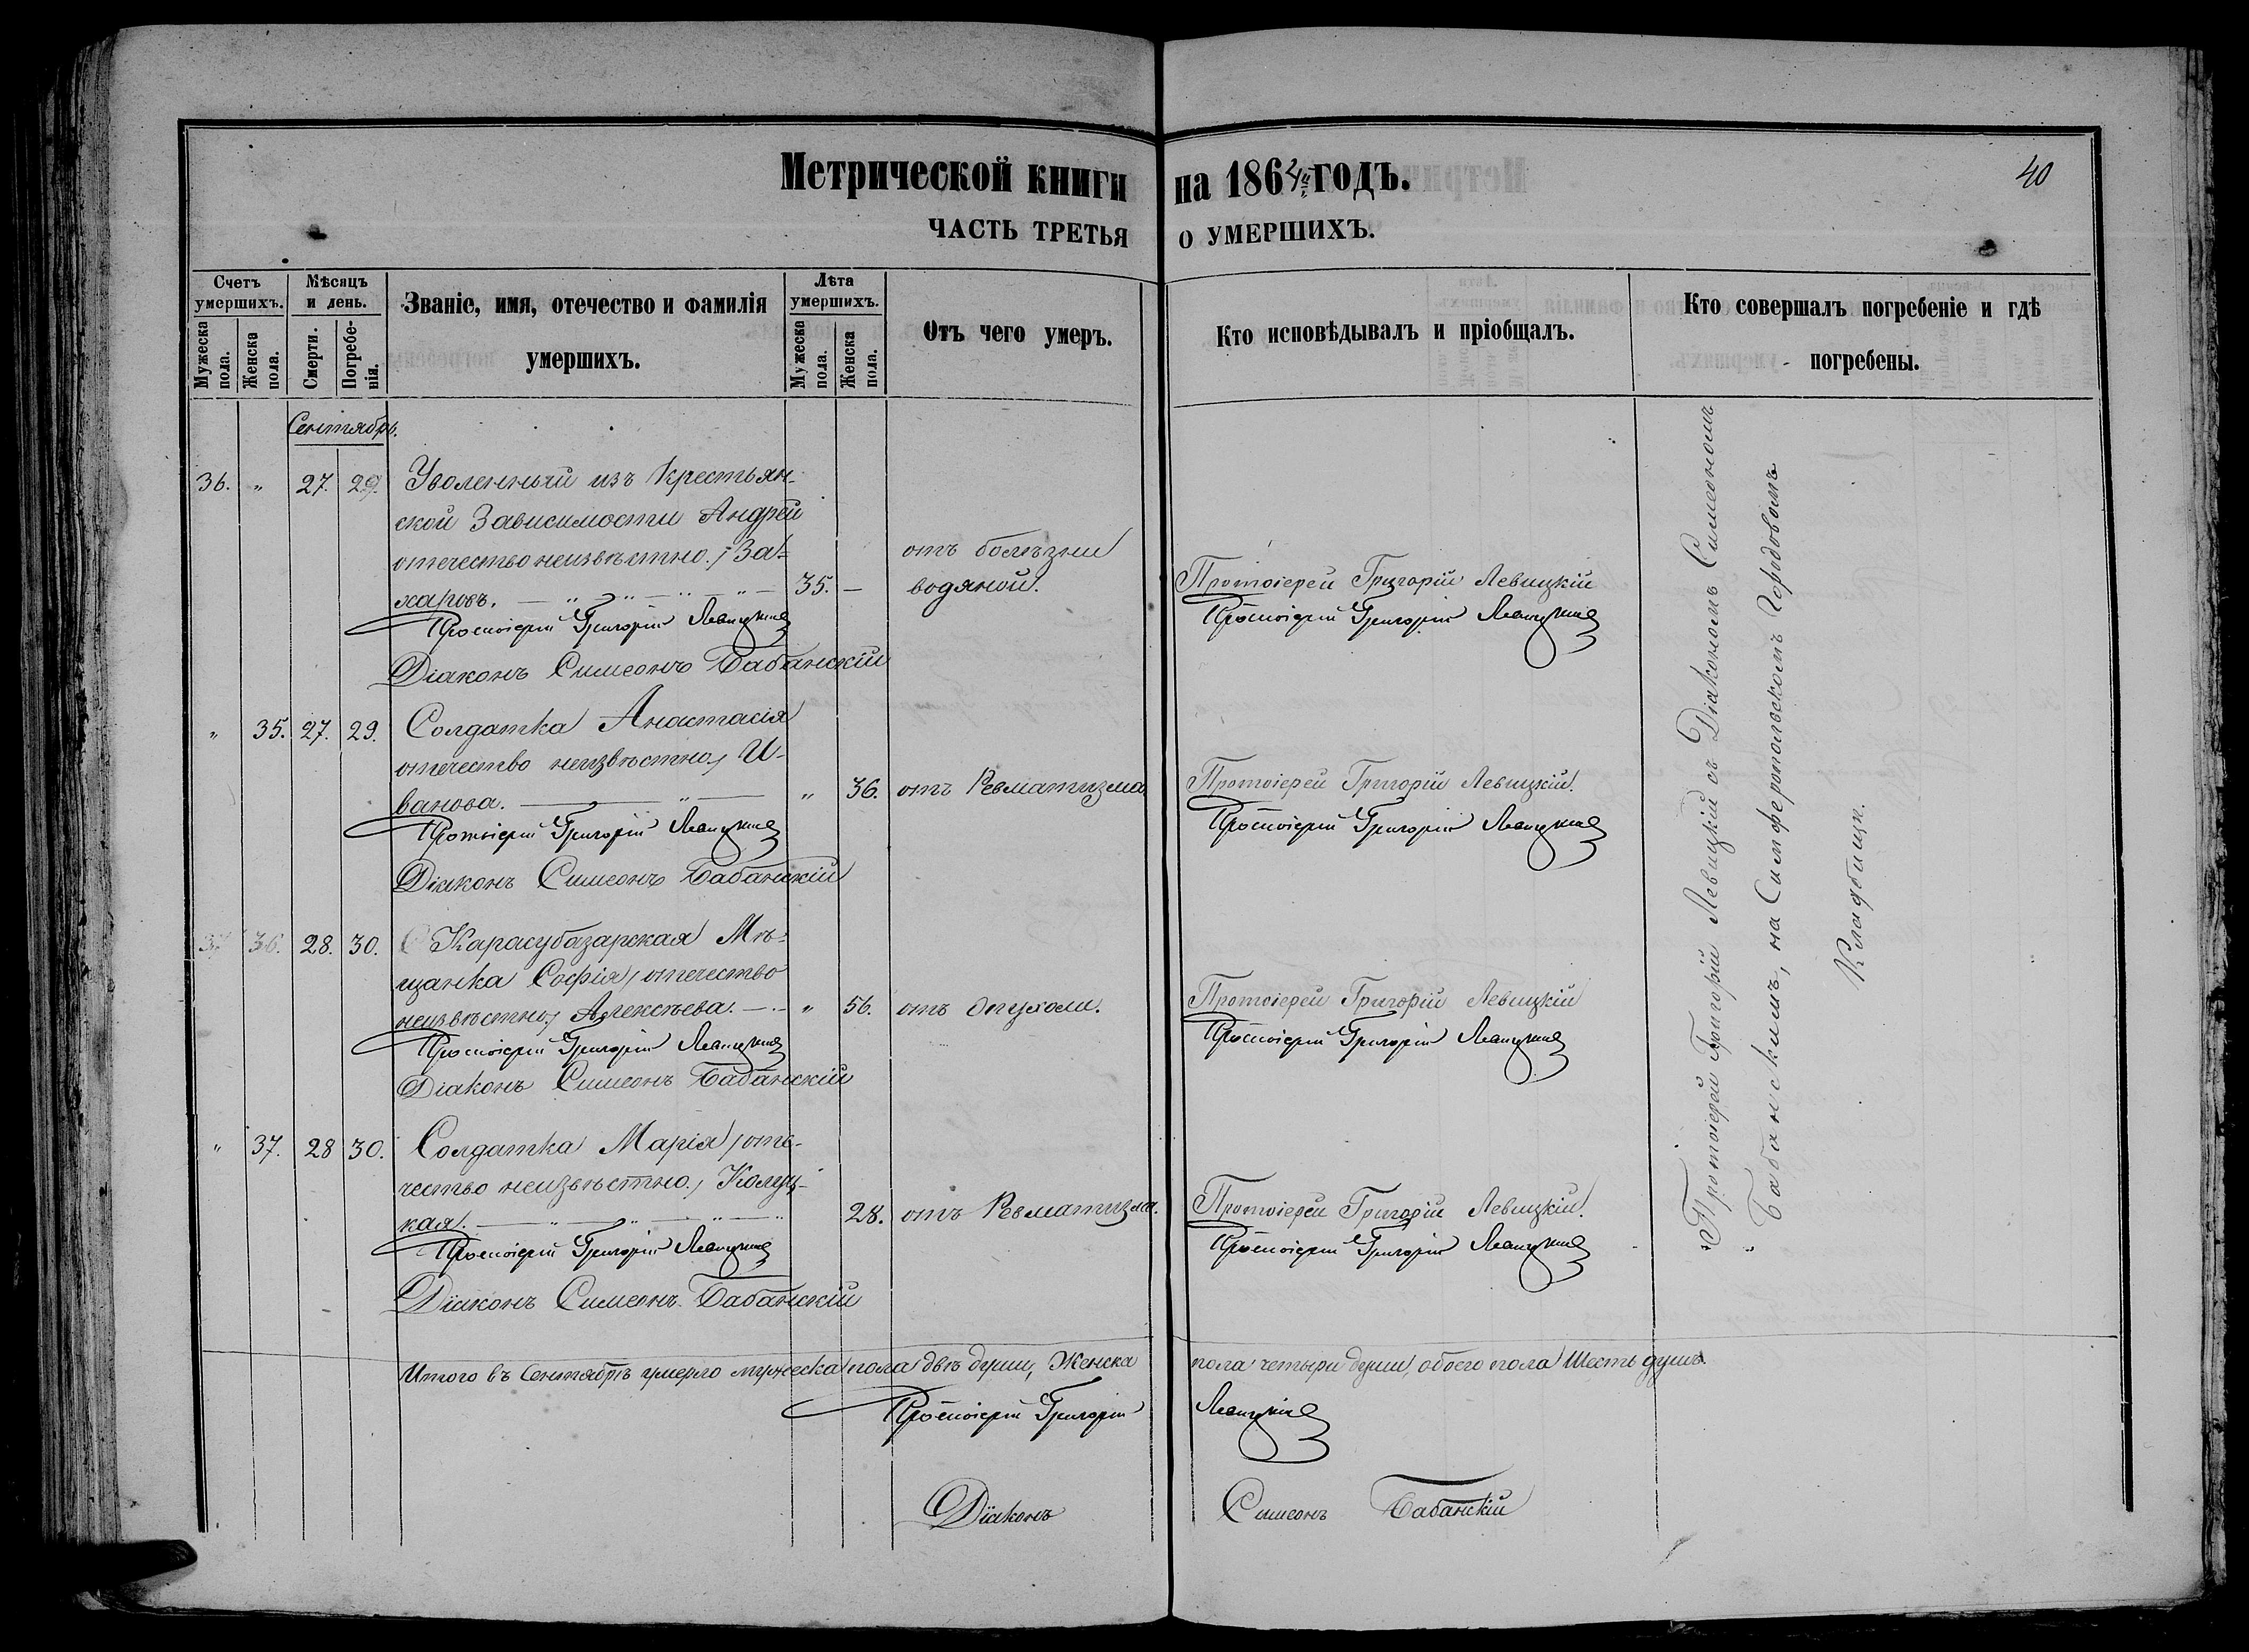 Метрической книги на 1864й годъ.
40
ЧАСТЬ ТРЕТЬЯ О УМЕРШИХЪ.
Счетъ умершихъ.
Мужеска пола.
Женска пола.
Мѣсяцъ и день.
Смерти.
Погребенія.
Званіе, имя, отечество и фамилія
умершихъ.
Лѣта умершихъ.
Мужеска пола.
Женска пола.
Отъ чего умеръ.
Кто исповѣдывалъ и пріобщалъ.
Кто совершалъ погребеніе и гдѣ
погребены.
Сентябрь.
36. „ 27. 29. Уволенный изъ Крестьян-
ской Зависимости Андрей
отечество неизвѣстно, / За-
харовъ. 35. —
отъ болѣзни
водяной.
Протоіерей Григорій Левицкій
Протоіерей Григорій Левицкій
Протоіерей Григорій Левицкій
Діаконъ Симеонъ Бабанскій
„ 35. 27. 29. Солдатка Анастасія
отечество неизвѣстно, И-
ванова. „ 36. отъ Ревматизма
Протоіерей Григорій Левицкій.
Протоіерей Григорій Левицкій
Протоіерей Григорій Левицкій
Діаконъ Симеонъ Бабанскій
37 36. 28. 30. Карасубазарская Мѣ-
щанка Софія, отечество
неизвѣстно, Алексѣева. „ 56. отъ Опухоли.
Протоіерей Григорій Левицкій
Протоіерей Григорій Левицкій
Протоіерей Григорій Левицкій
Діаконъ Симеонъ Бабанскій
„ 37. 28 30. Солдатка Марія, оте-
чество неизвѣстно, Колуц-
кая. 28. отъ Ревматизма.
Протоіерей Григорій Левицкій.
Протоіерей Григорій Левицкій
Протоіерей Григорій Левицкій
Діаконъ Симеонъ Бабанскій
Протоіерей Григорій Левицкій съ Діакономъ Симеономъ
Бабанскимъ, на Симферопольскомъ Городовомъ
Кладбищѣ.
Итого въ Сентябрѣ умерло мужеска пола двѣ души, Женска пола четыри души, обоего пола Шесть душъ.
Протоіерей Григорій Левицкій
Діаконъ Симеонъ Бабанскій